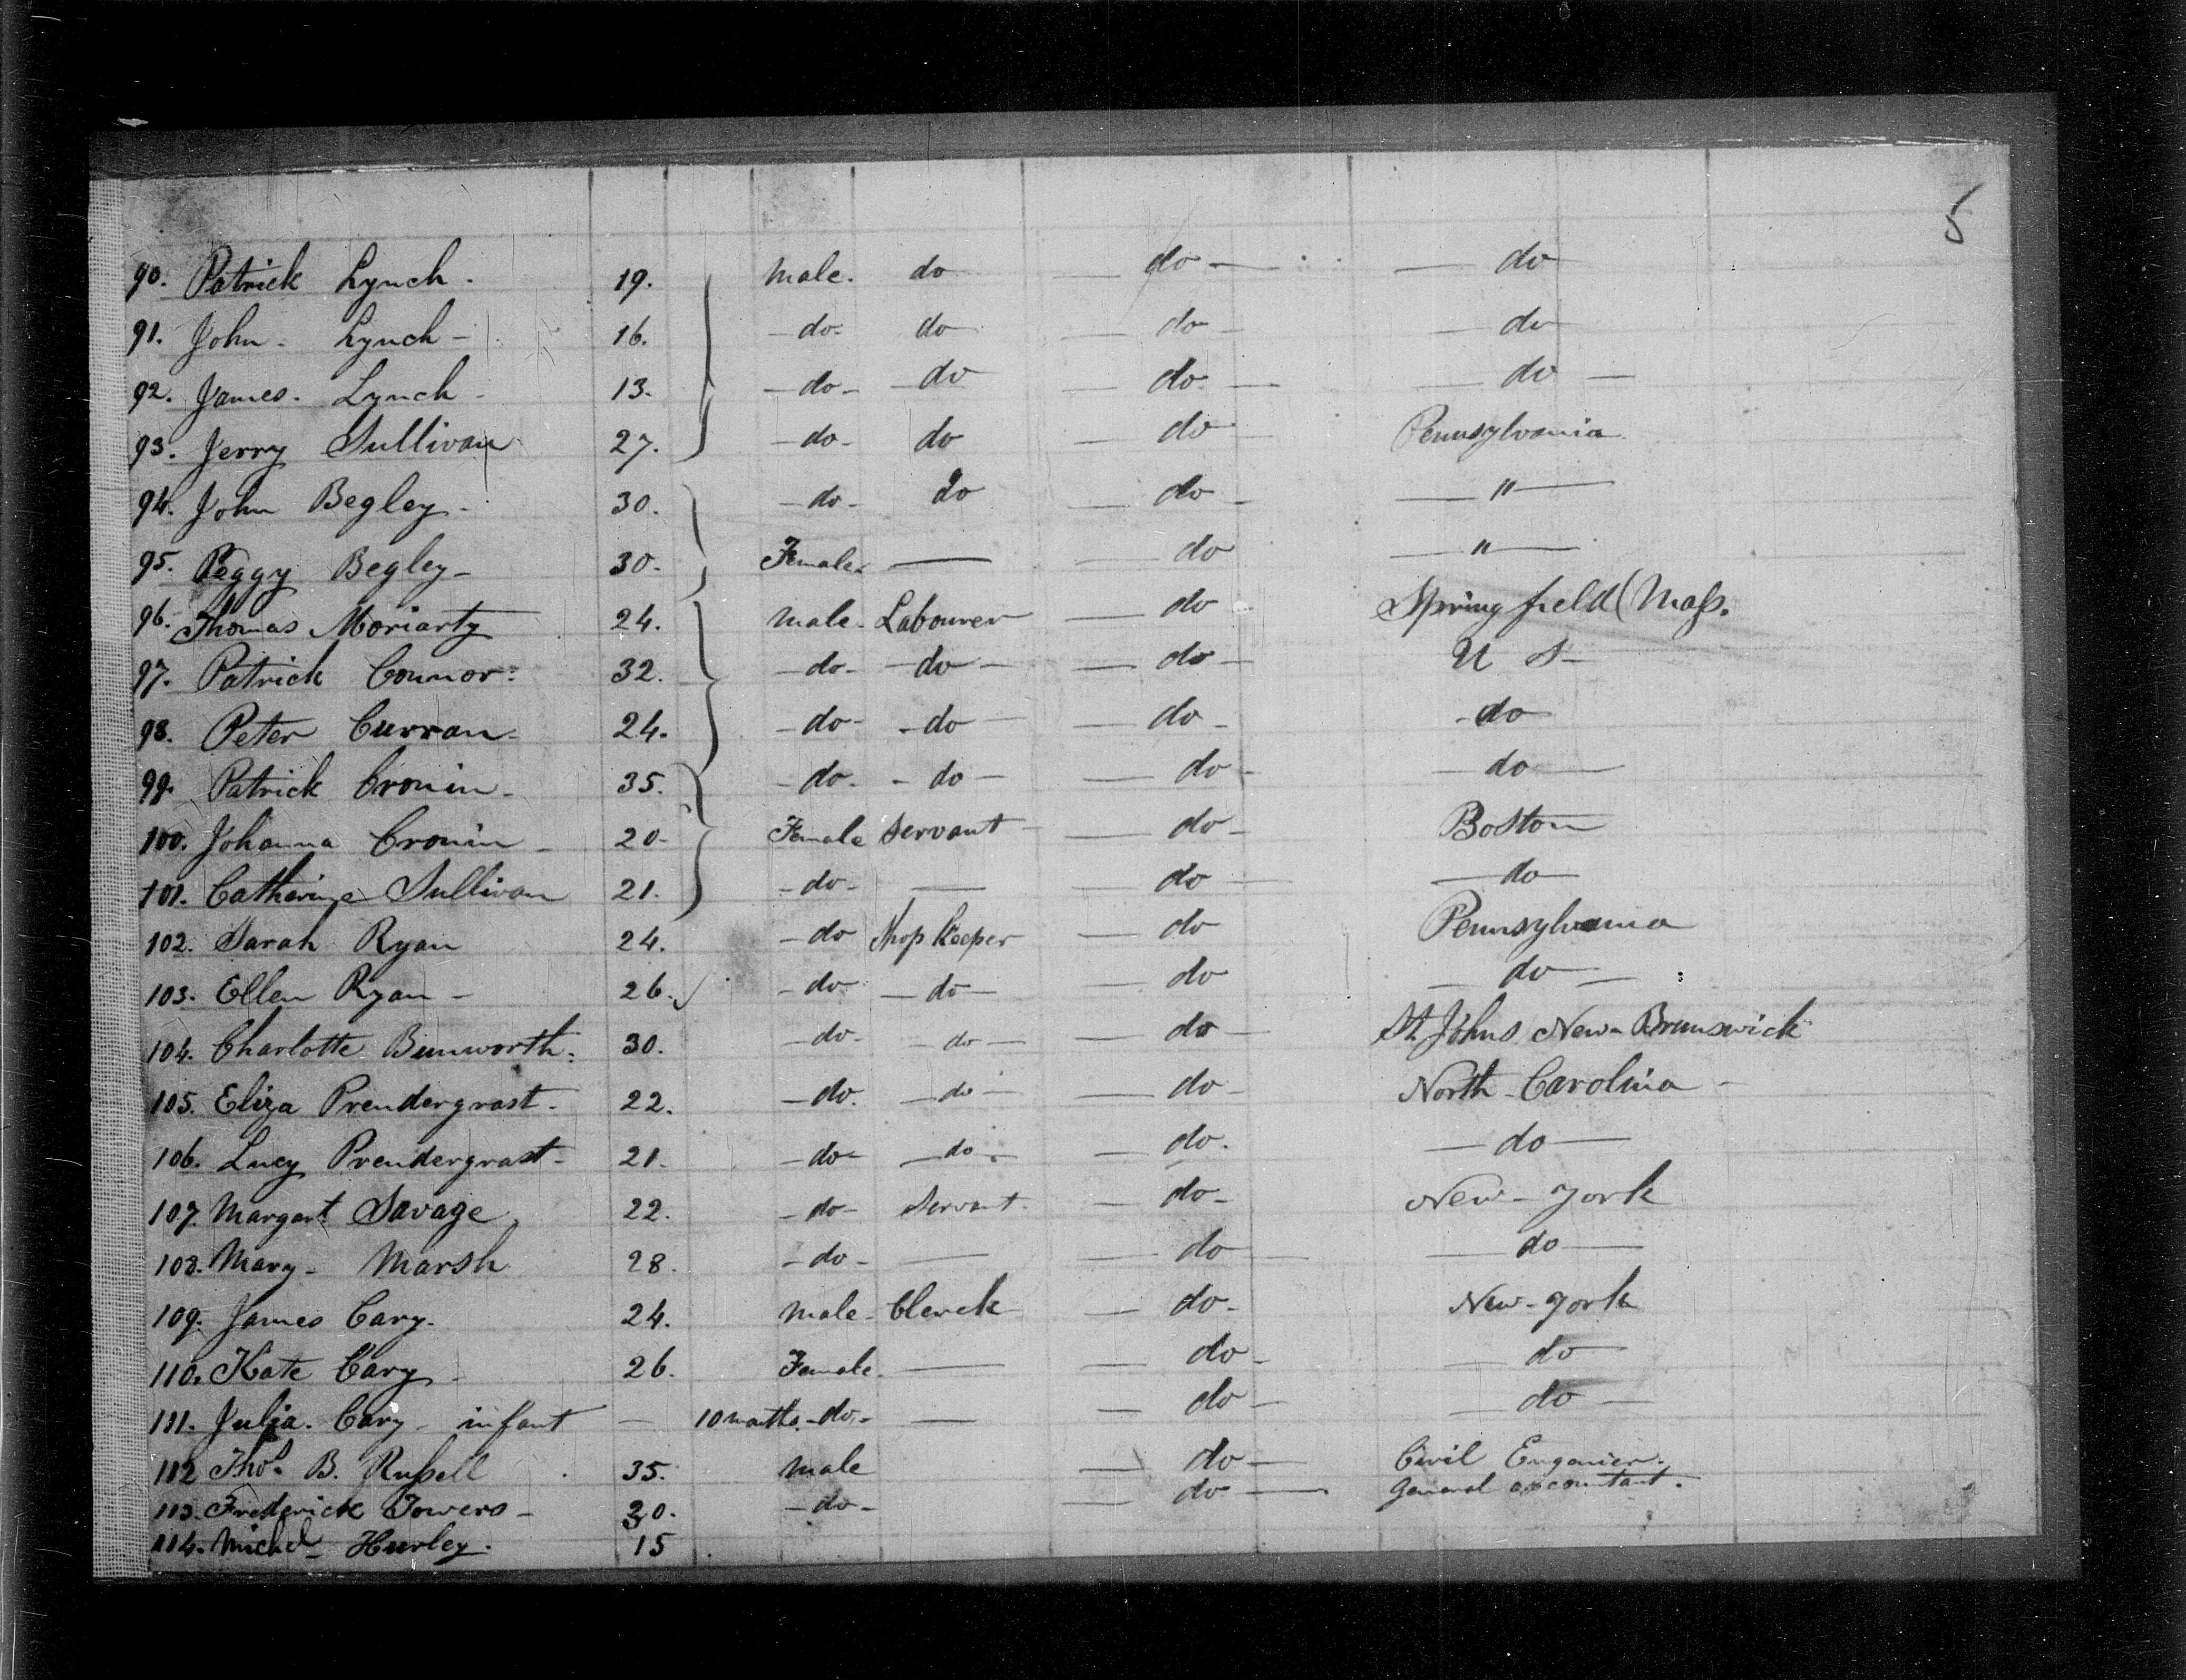 5
90. Patrick Lynch. 19. Male. do — do — — do
91. John. Lynch — 16. — do. do — do — — do
92. James. Lynch — 13. — do — — do — do. — — do —
93. Jerry Sullivan 27. — do — do — do — Pennsylvania
94. John Begley — 30. — do — do — do — — " —
95. Peggy Begley — 30. Female. — — do — " —
96. Thomas Moriarty 24. Male. Labourer — do Springfield (Mass.
97. Patrick Connor: 32. — do — — do — — do — U S —
98. Peter Curran — 24. — do — — do — — do — — do
99. Patrick Cronin — 35. — do. — do — — do — — do —
100. Johanna Cronin — 20 — Female Servant — do — Boston
101. Catherine Sullivan 21. — do — — — do — — do —
102. Sarah Ryan 24. — do Shop Keeper — do Pennsylvania
103. Ellen Ryan — 26. — do — do — — do — do — :
104. Charlotte Bunworth. 30. — do — — do — — do — St. Johns New-Brunswick
105. Eliza Prendergrast. 22. — do. — do — — do — North-Carolina —
106. Lucy Prendergrast — 21. — do — — do. — do. — do —
107. Margart Savage 22. — do — Servant. — do — New-york
108. Mary — Marsh 28. — do — — — do — — do —
109. James Cary. 24. Male. Clerck — do — New-york
110. Kate Cary — 26. Female. — — do — — do
111. Julja. Cary — infant — 10 months. — do. — — — do — — do —
112 Thos. B. Russell . 35. Male — do — Civil Enganier.
113. Frederick Towers — 30. — do — — do — General accountant.
114. Michel — Hurley. 15